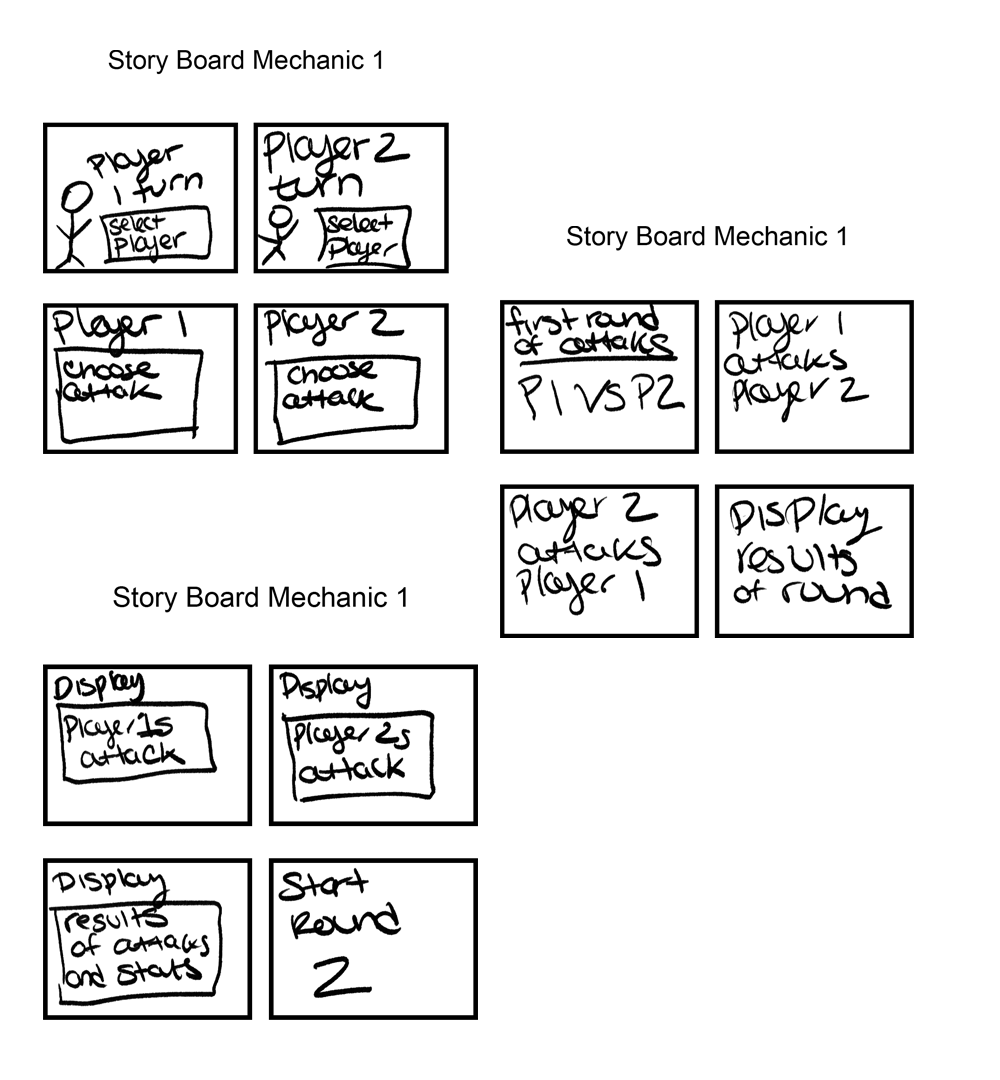 Story Board Mechanic 1
Player
1 turn
select
Player
Player 2
turn
select
Player
Player 1
choose
attak
Player 2
choose
attack
Story Board Mechanic 1
first round
of attaks
P1 VS P2
Player 1
attaks
Player 2
Player 2
attaks
Player 1
Display
results
of round
Story Board Mechanic 1
Display
Player 1s
attack
Display
Player 2s
attack
Display
results
of attacks
and stats
Start
Round
2